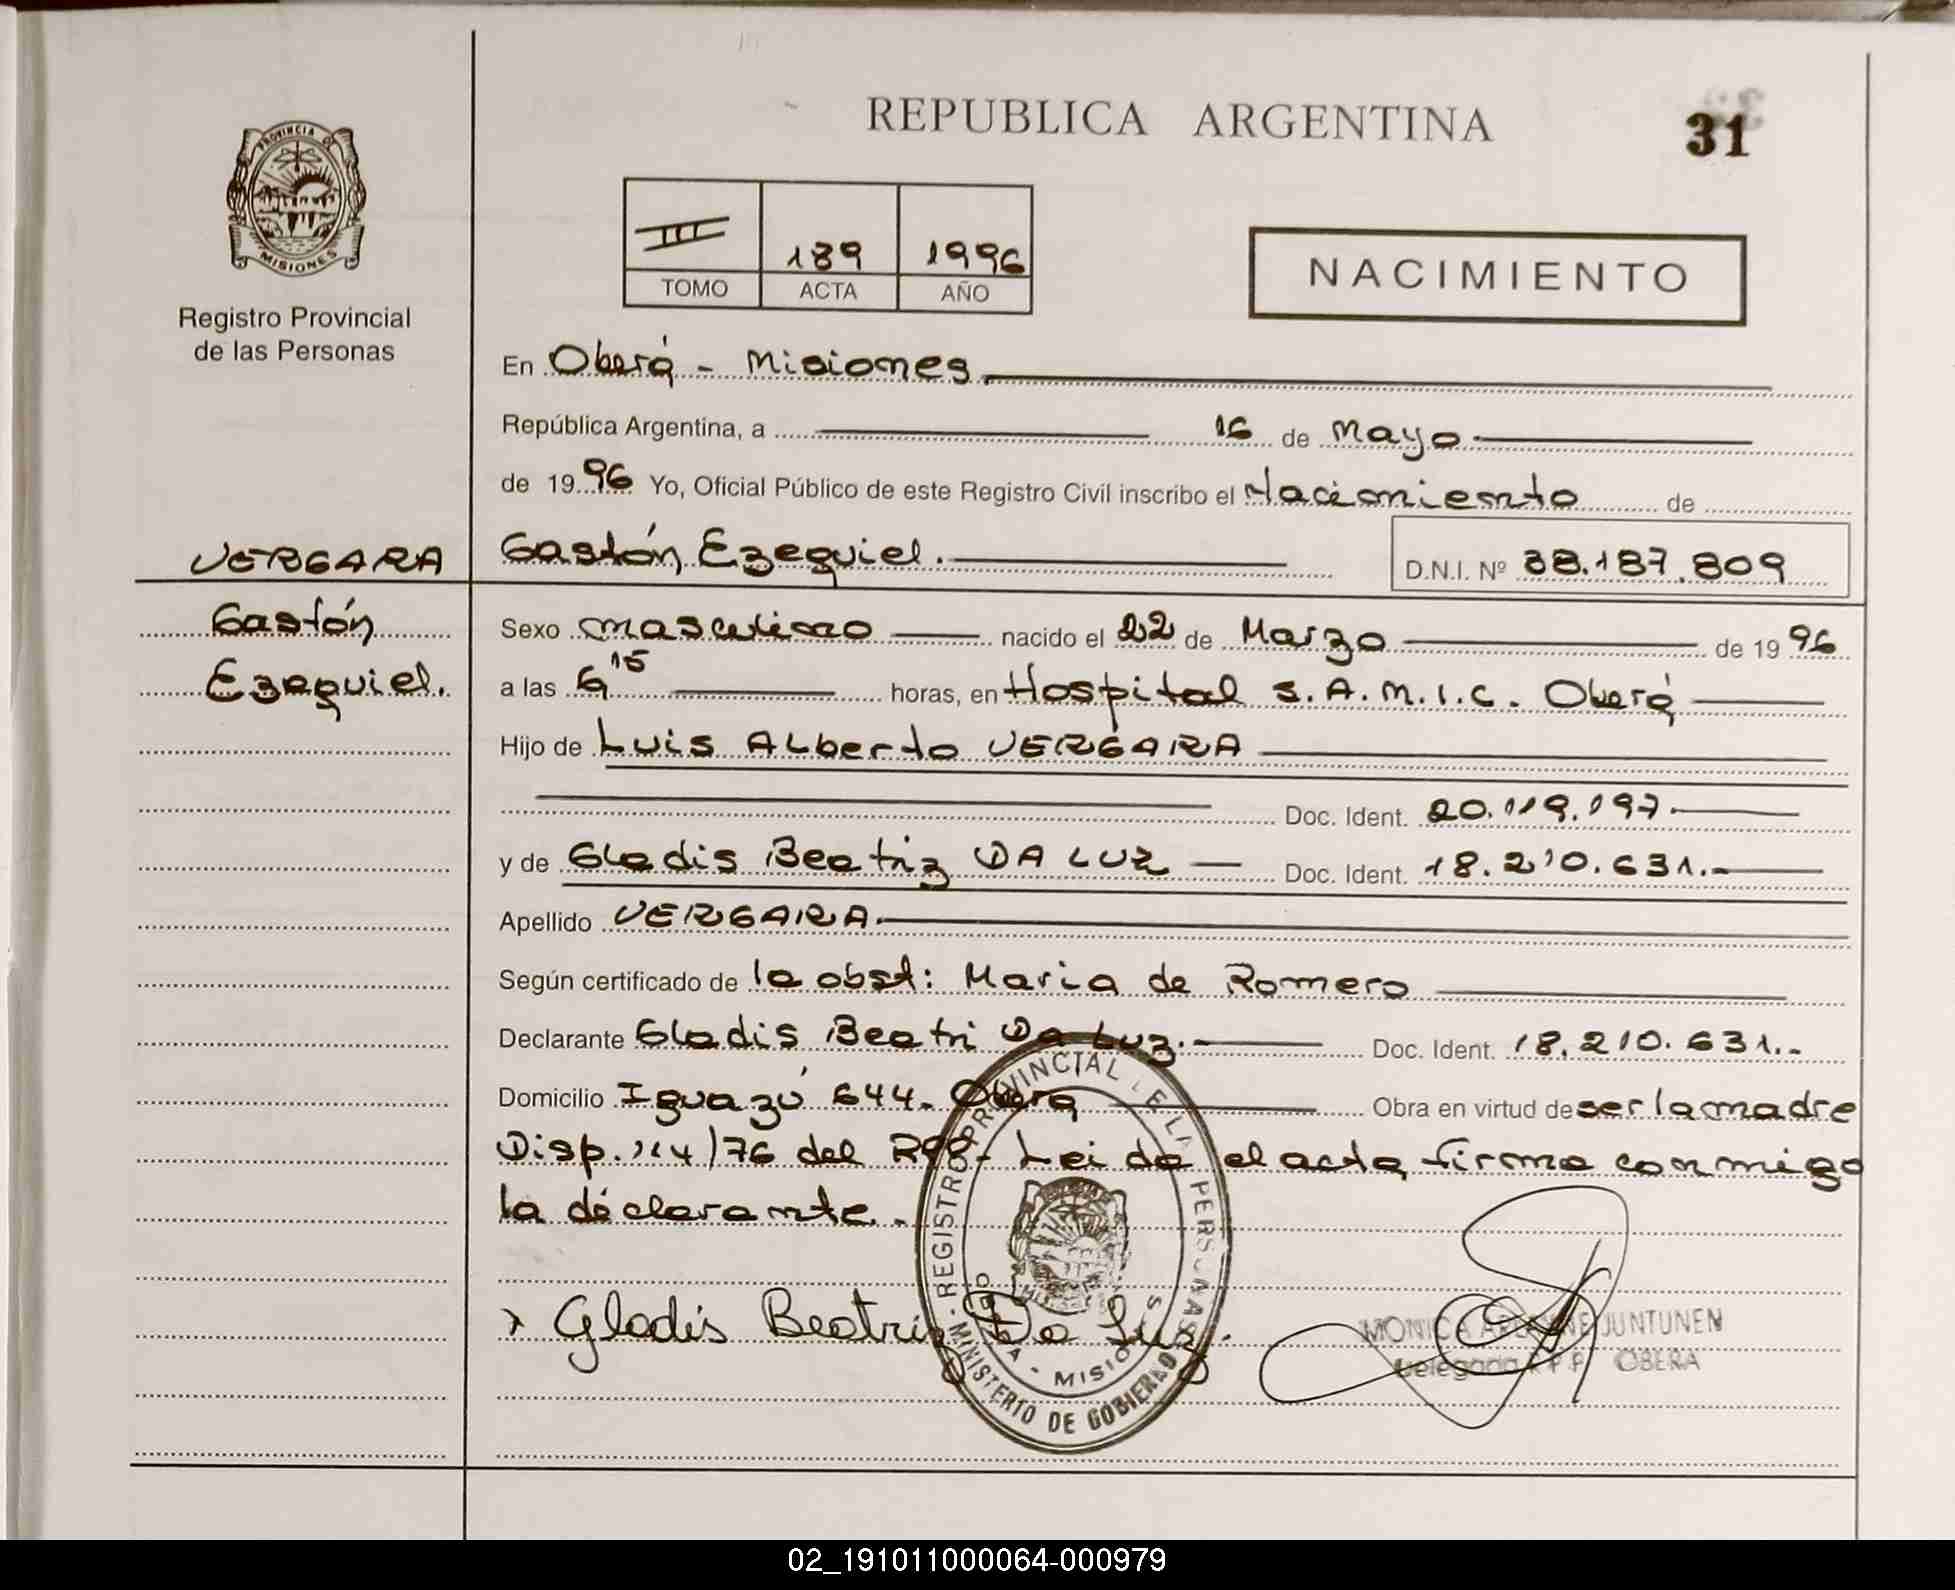 REPUBLICA ARGENTINA
31
PROVINCIA DE
MISIONES
Registro Provincial
de las Personas
III 189 1996
TOMO ACTA AÑO
NACIMIENTO
En Oberá - Misiones
República Argentina, a 16 de Mayo
de 1996 Yo, Oficial Público de este Registro Civil inscribo el Nacimiento de
VERGARA
Gastón
Ezequiel.
Gastón Ezequiel. D.N.I. Nº 38.187.809
Sexo masculino nacido el 22 de Marzo de 1996
a las 6 15 horas, en Hospital S.A.M.I.C. Oberá
Hijo de Luis Alberto VERGARA
Doc. Ident. 20.119.197.
y de Gladis Beatriz DA LUZ Doc. Ident. 18.210.631.-
Apellido VERGARA.
Según certificado de la obst: Maria de Romero
Declarante Gladis Beatri Da Luz. Doc. Ident. 18.210.631.-
Domicilio Iguazú 644. Oberá Obra en virtud de ser la madre
Disp. 114/76 del RPP- Leida el acta firma conmigo
la déclarante.-
Gladis Beatriz Da Luz.
REGISTRO PROVINCIAL DE LAS PERSONAS
MINISTERIO DE GOBIERNO
MISIONES
MONICA JUNTUNEN
Delegada R.P.P. OBERA
02_191011000064-000979